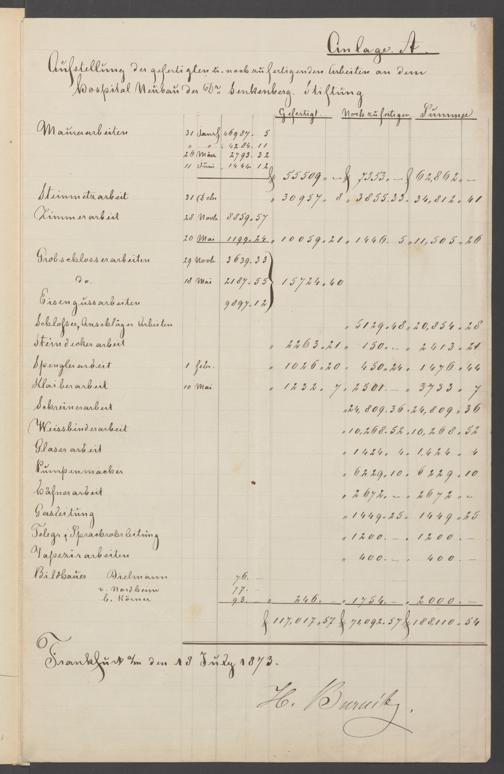 Anlage A.
Aufstellung der gefertigten u. noch zu fertigenden Arbeiten an dem
Hospital Neubau der Dr. Senkenberg. Stiftung
Gefertigt Noch zu fertigen Summe
Maurerarbeiten 31 46987. 5
" " 4284. 11
26 März 2793. 32
11 Juni 1444. 12
f 55509 — f 7353. — f 62,862. —
Steinmetzarbeit 31 " 30957. 8 " 3855.33 " 34,812. 41
Zimmerarbeit 28 Novb 8859.57
20 Mai 1199.24 " 10059.21 " 1446. 5 " 11,505. 26
Grobschlosserarbeiten 29 Novb 3639.33
do. 18 Mai 2187.55 15724.40
Eisengussarbeiten 9897.12
Schlosser, Anschläger Arbeiten " 5129.48 " 20,854. 28
Steindeckerarbeit " 2263.21 " 150. — " 2413. 21
Spenglerarbeit 1 Febr. " 1026.20 " 450.24 " 1476. 44
Klaiberarbeit 10 Mai " 1232. 7 " 2501 — " 3733. 7
Schreinerarbeit " 24,809.36 " 24,809. 36
Weissbinderarbeit " 10,268.52 " 10,268. 52
Glaserarbeit " 1424. 4 " 1,424. 4
Pumpenmacher " 6229.10 " 6229. 10
Häfnerarbeit " 2672. — " 2672 —
Gasleitung " 1449.25 " 1449. 25
Telegr. & Sprachrohrleitung " 1200. — " 1200. —
Tapezirarbeiten " 400. — " 400. —
Bildhauer 76. —
v. Nordheim 77. —
C. Körner 93. — " 246. — " 1754. — " 2000. —
f 117,017.57 f 72092.57 f 188110. 54
Frankfurt a/m den 18 July 1873.
H. Burnitz.